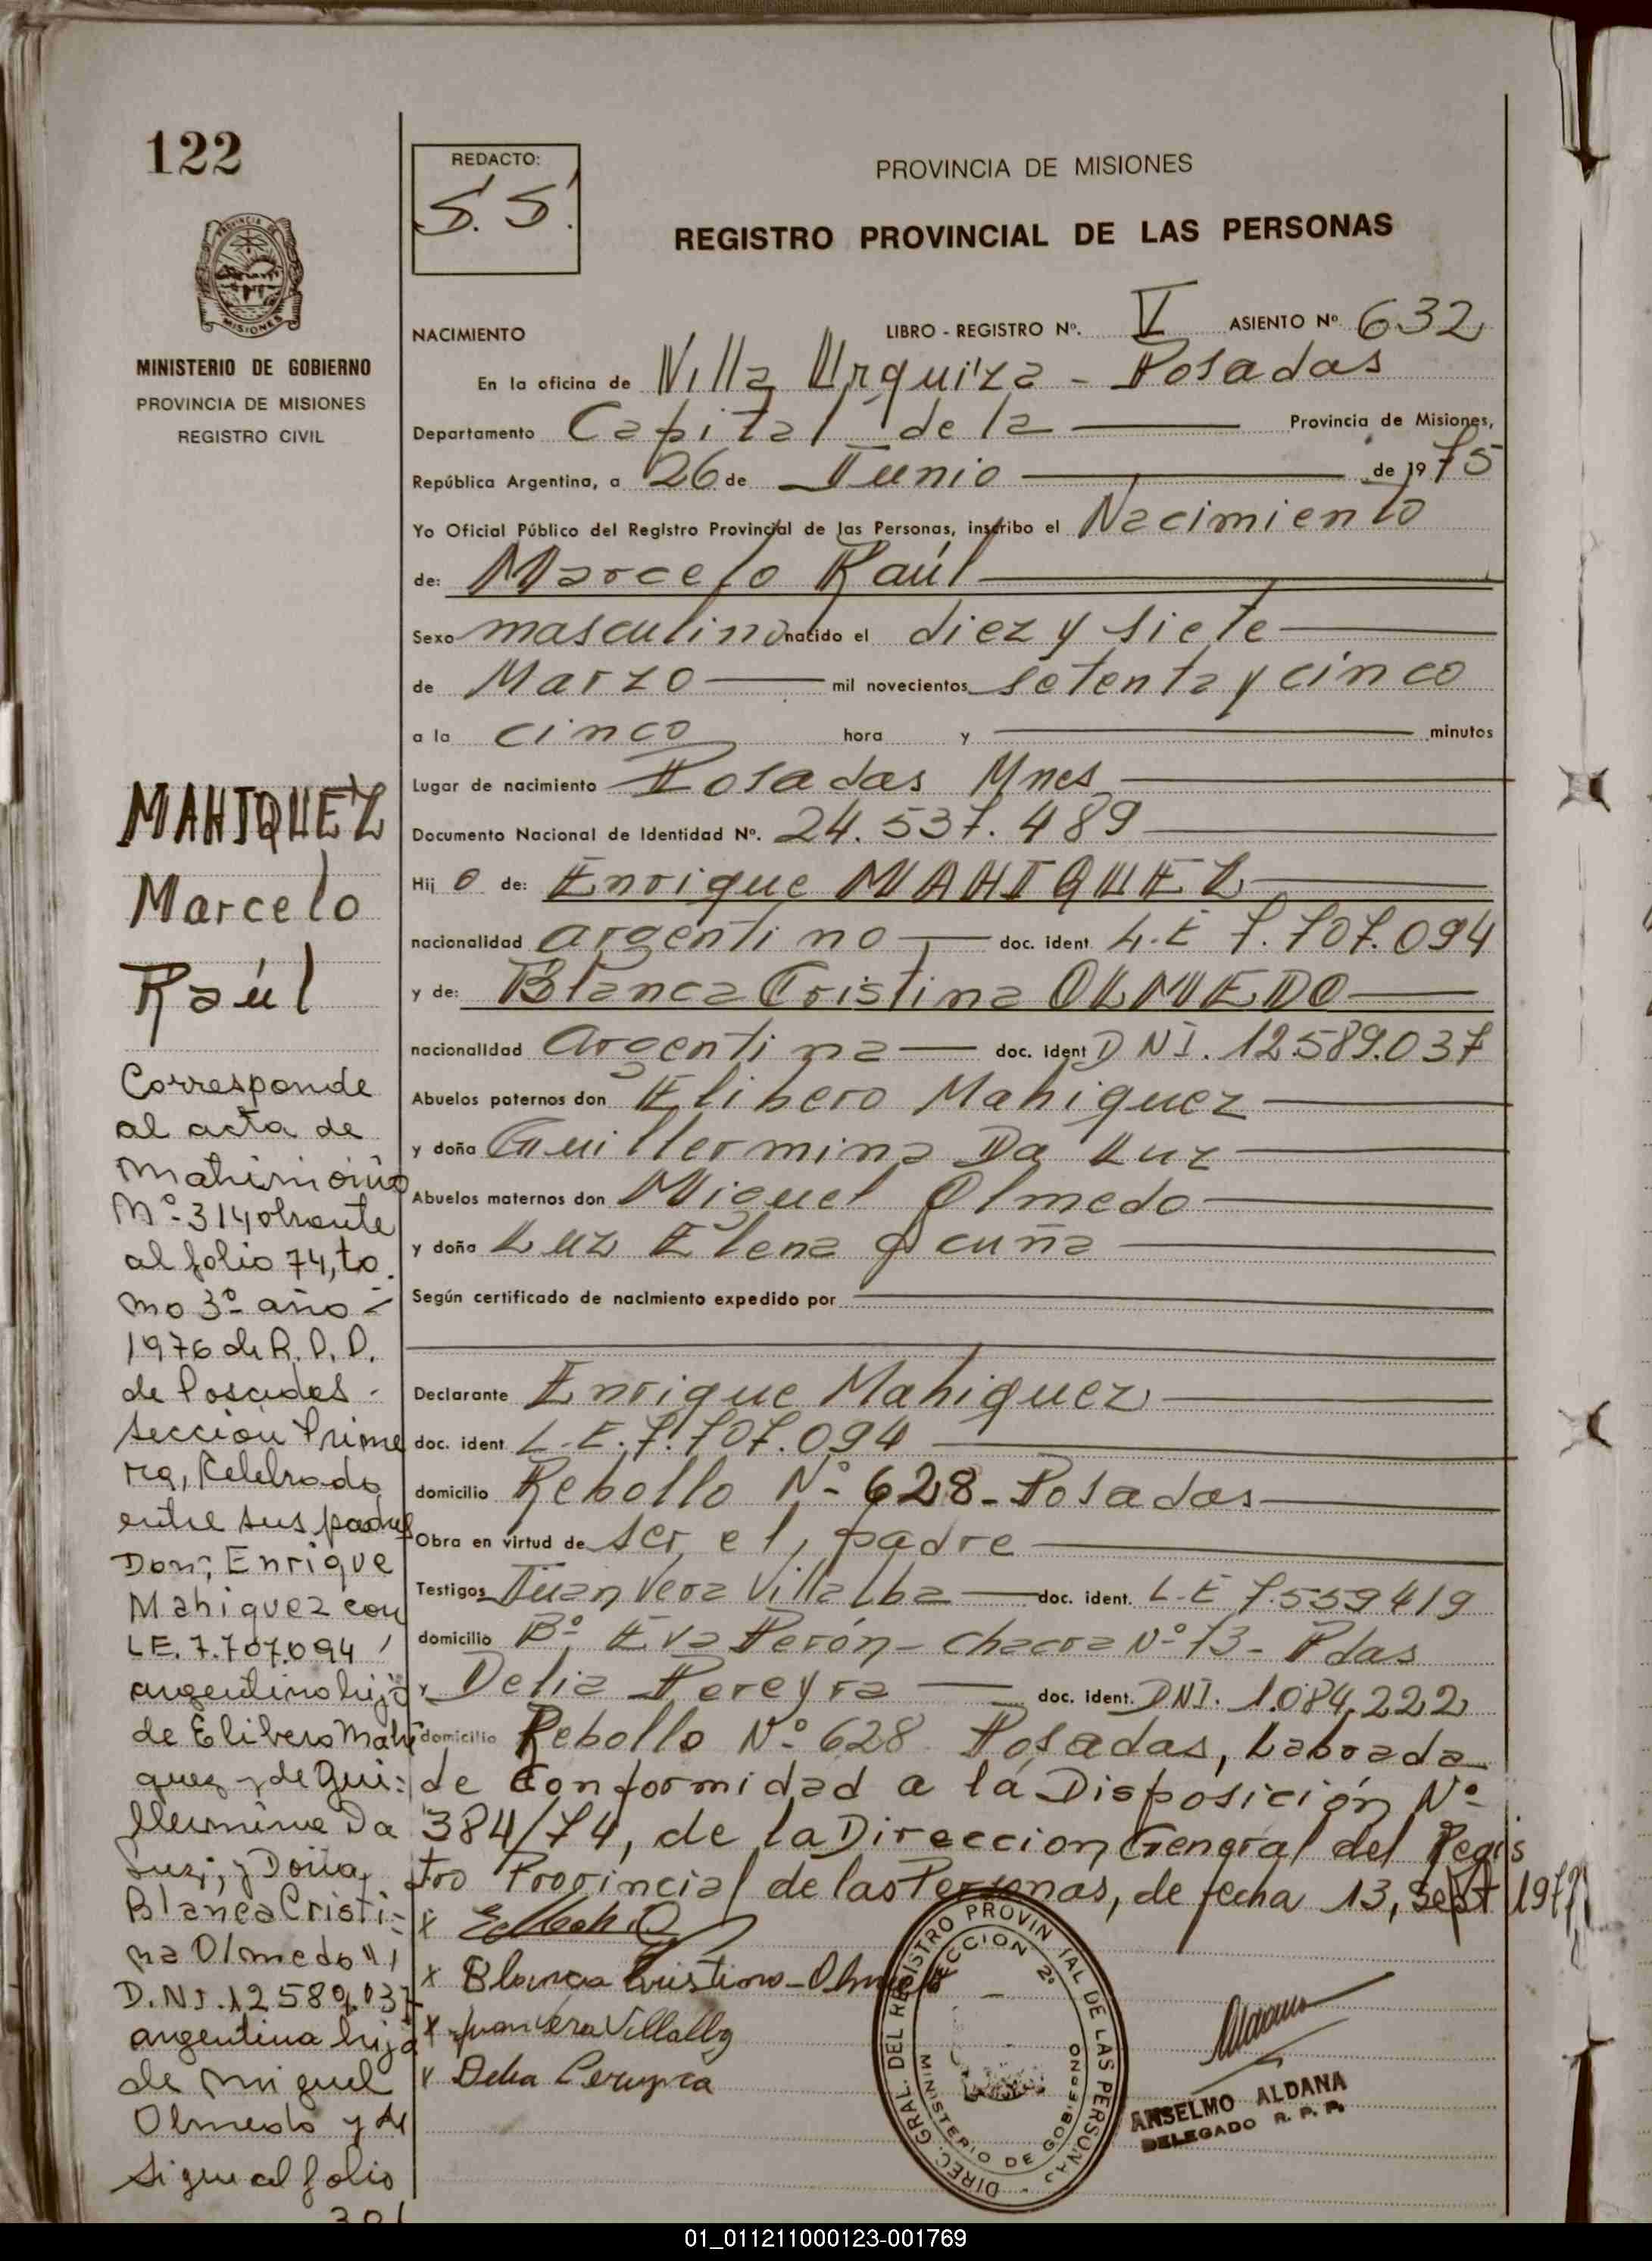 122
PROVINCIA DE
MISIONES
MINISTERIO DE GOBIERNO
PROVINCIA DE MISIONES
REGISTRO CIVIL
MAHIQUEZ
Marcelo
Raúl
Corresponde
al acta de
Matrimonio
Nº 314 obrante
al folio 74, to
mo 3º año
1976 de R.P.P.
de Posadas -
Sección Prime
ra, Celebrado
entre sus padres
Don; Enrique
Mahiquez con
LE. 7.707.094
argentino hijo
de Elibero Mahi
quez y de Gui:
llermina Da
Luz; y Doña
Blanca Cristi-
na Olmedo
D.N.I. 12589.037
argentina hija
de Miguel
Olmedo y de
Sigue al folio
REDACTO:
S. S.
PROVINCIA DE MISIONES
REGISTRO PROVINCIAL DE LAS PERSONAS
NACIMIENTO LIBRO - REGISTRO Nº. V ASIENTO Nº 632
En la oficina de Villa Urquiza - Posadas
Departamento Capital de la Provincia de Misiones,
República Argentina, a 26 de Junio de 1975
Yo Oficial Público del Registro Provincial de las Personas, inscribo el Nacimiento
de: Marcelo Raúl
Sexo masculino nacido el diez y siete
de Marzo mil novecientos setenta y cinco
a la cinco hora y minutos
Lugar de nacimiento Posadas Mnes
Documento Nacional de Identidad Nº. 24.537.489
Hijo de: Enrique MAHIQUEZ
nacionalidad argentino doc. ident. L.E 7.707.094
y de: Blanca Cristina OLMEDO
nacionalidad Argentina doc. ident DNI. 12589.037
Abuelos paternos don Elibero Mahiquez
y doña Guillermina Da Luz
Abuelos maternos don Miguel Olmedo
y doña Luz Elena Acuña
Según certificado de nacimiento expedido por
Declarante Enrique Mahiquez
doc. ident. L.E. 7.707.094
domicilio Rebollo Nº 628 - Posadas
Obra en virtud de ser el padre
Testigos Juan Vera Villalba doc. ident. L.E 7.559419
domicilio Bº Eva Perón - chacra Nº 73 - Pdas
y Delia Pereyra doc. ident. DNI. 1.084.222
domicilio Rebollo Nº 628 Posadas, Labrada
de Conformidad a la Disposición Nº
384/74, de la Direccion General del Regis
tro Provincial de las Personas, de fecha 13, Sept 197
x
x Blanca Cristina Olmedo
x Juan Vera Villalba
x Delia Pereyra
DIREC. GRAL. DEL REGISTRO PROVINCIAL DE LAS PERSONAS
SECCION 2ª
MINISTERIO DE GOBIERNO
ANSELMO ALDANA
DELEGADO R. P. P.
01_011211000123-001769